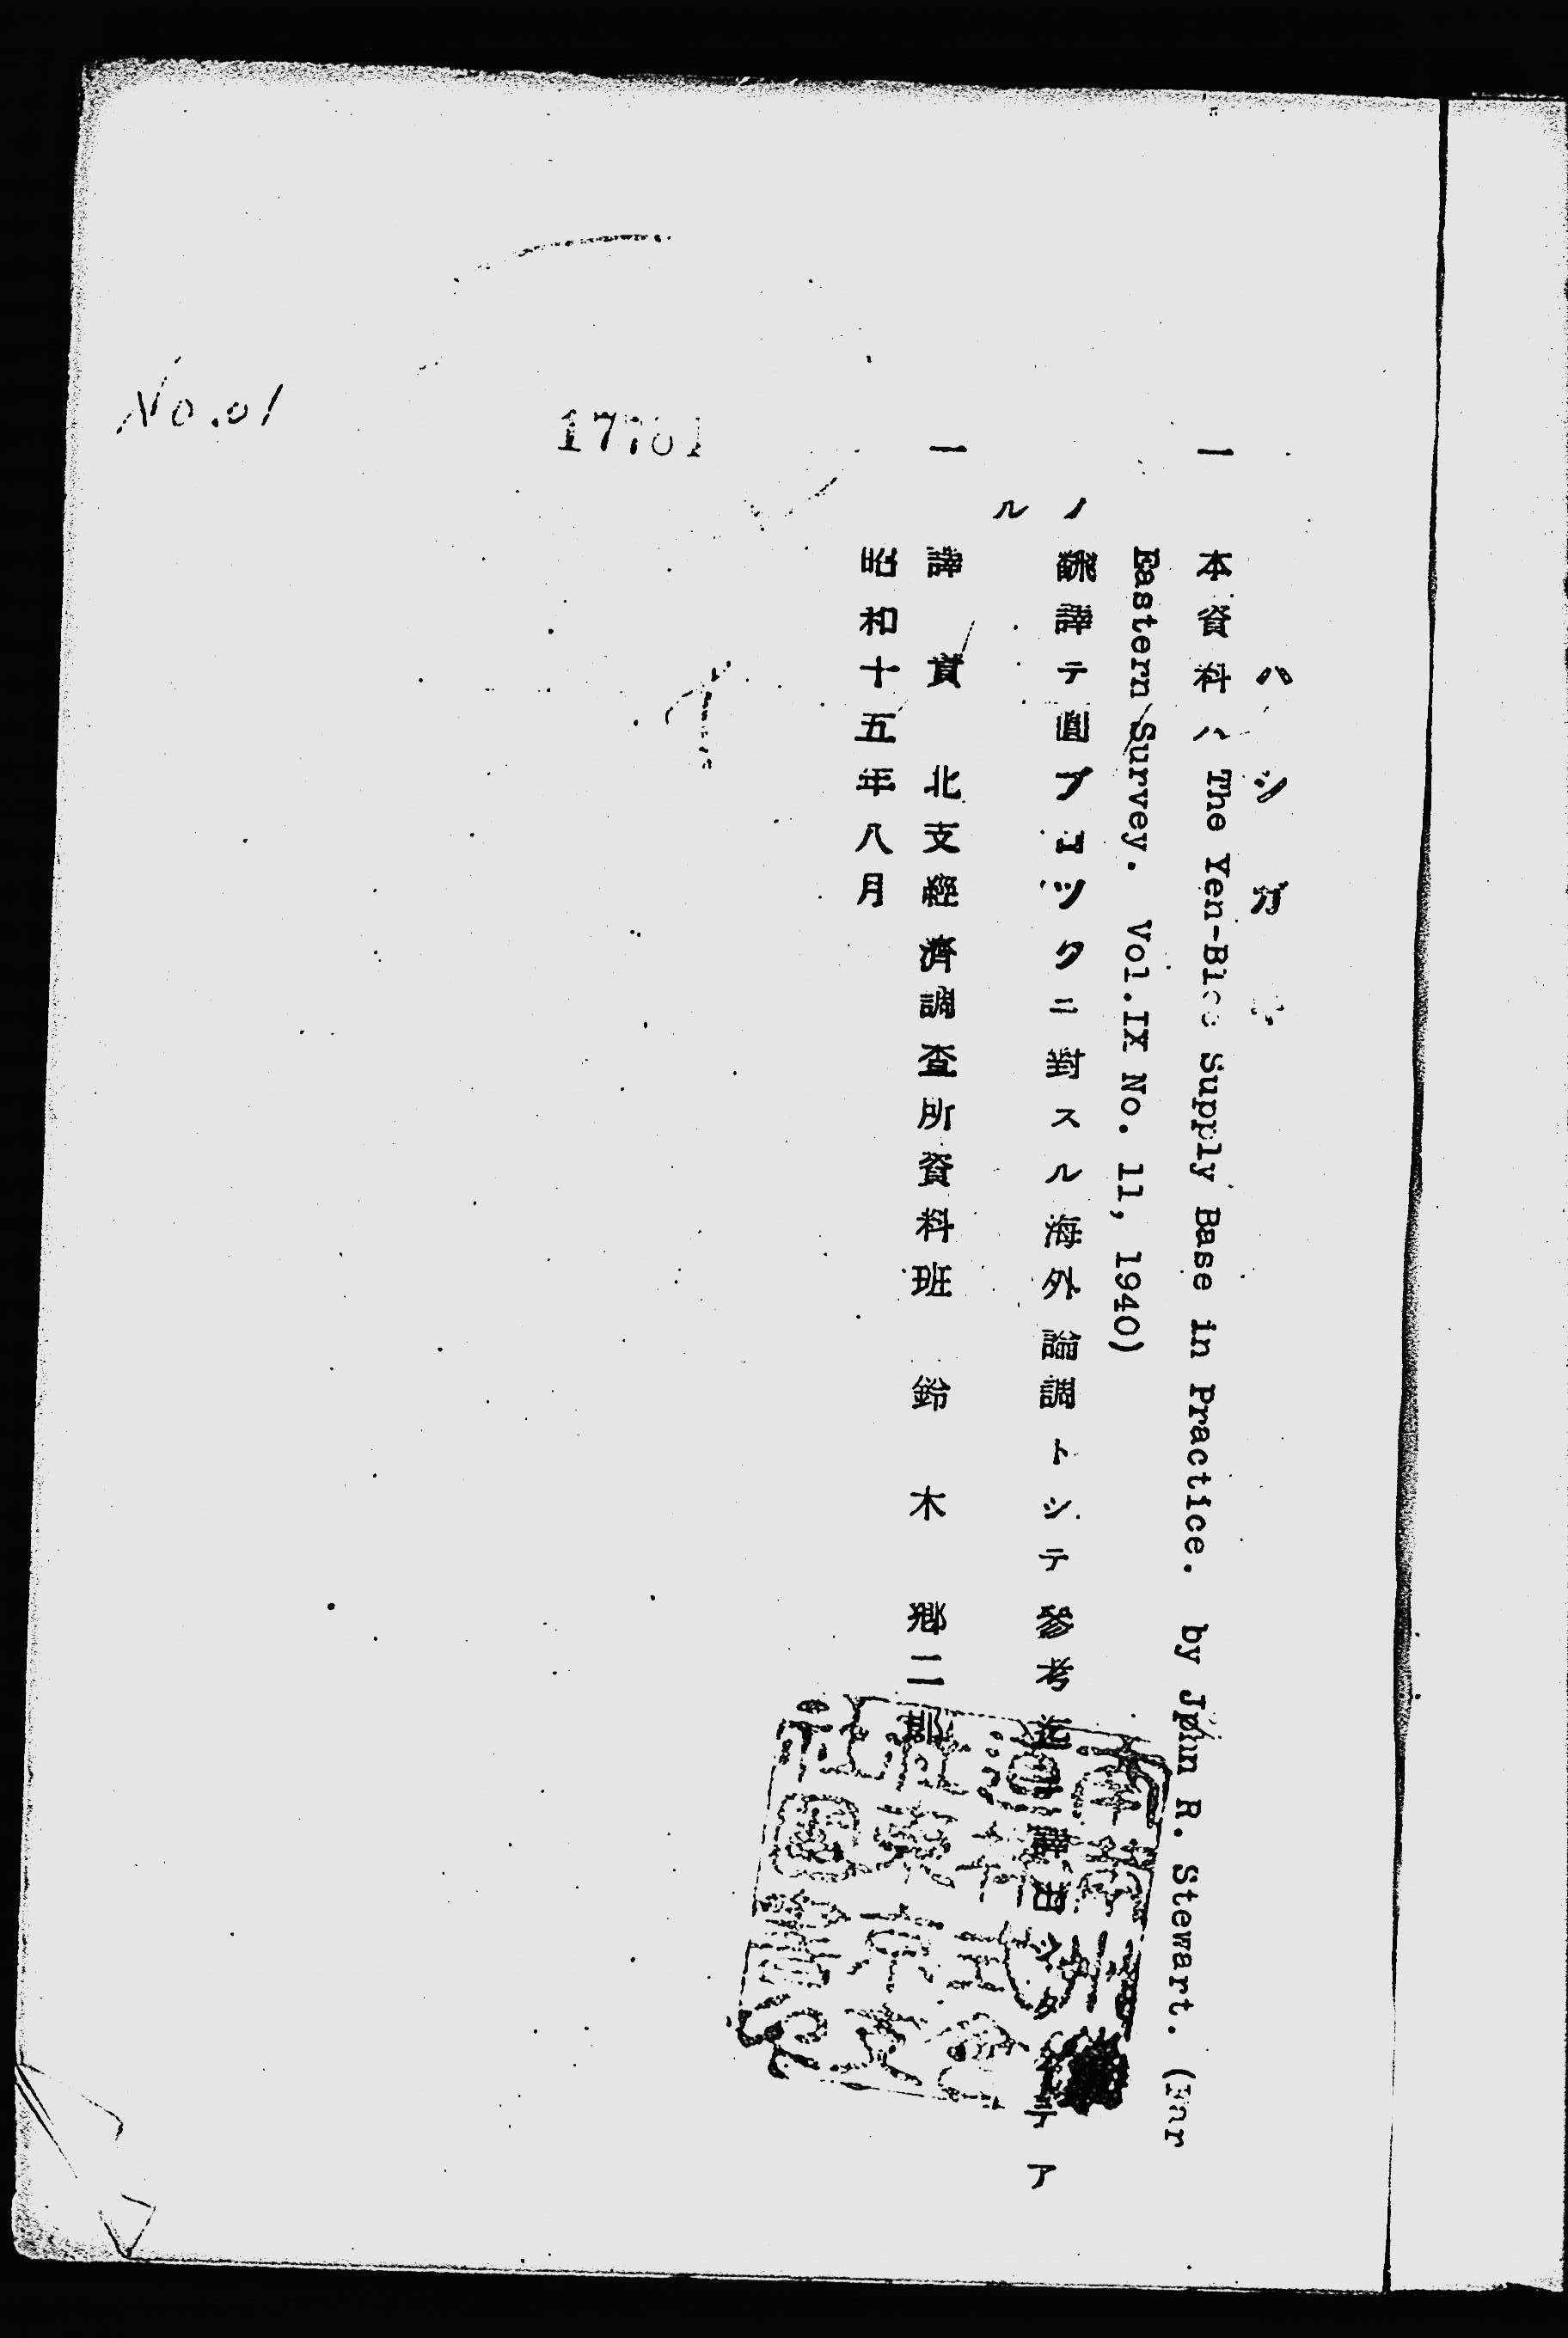 ハシガ
一 本資料ハ The Yen-Bloc Supply Base in Practice. by John R. Stewart. (Far
Eastern Survey. Vol.IX No. 11, 1940)
ノ飜譯テ圓ブロツクニ對スル海外論調トシテ參考
テア
ル
一 譯 責 北支經濟調査所資料班 鈴木郷二郎
昭和十五年八月
17701
No.01